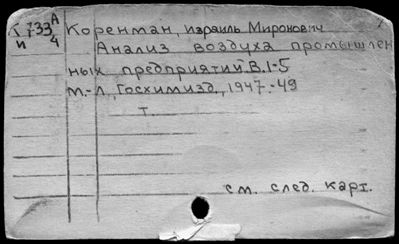 Т 733 А/4 Коренман, Израиль Миронович
и Анализ воздуха промышлен
ных предприятий В.1-5
М.-Л., Госхимизд., 1947-49
Т.
см. след. карт.